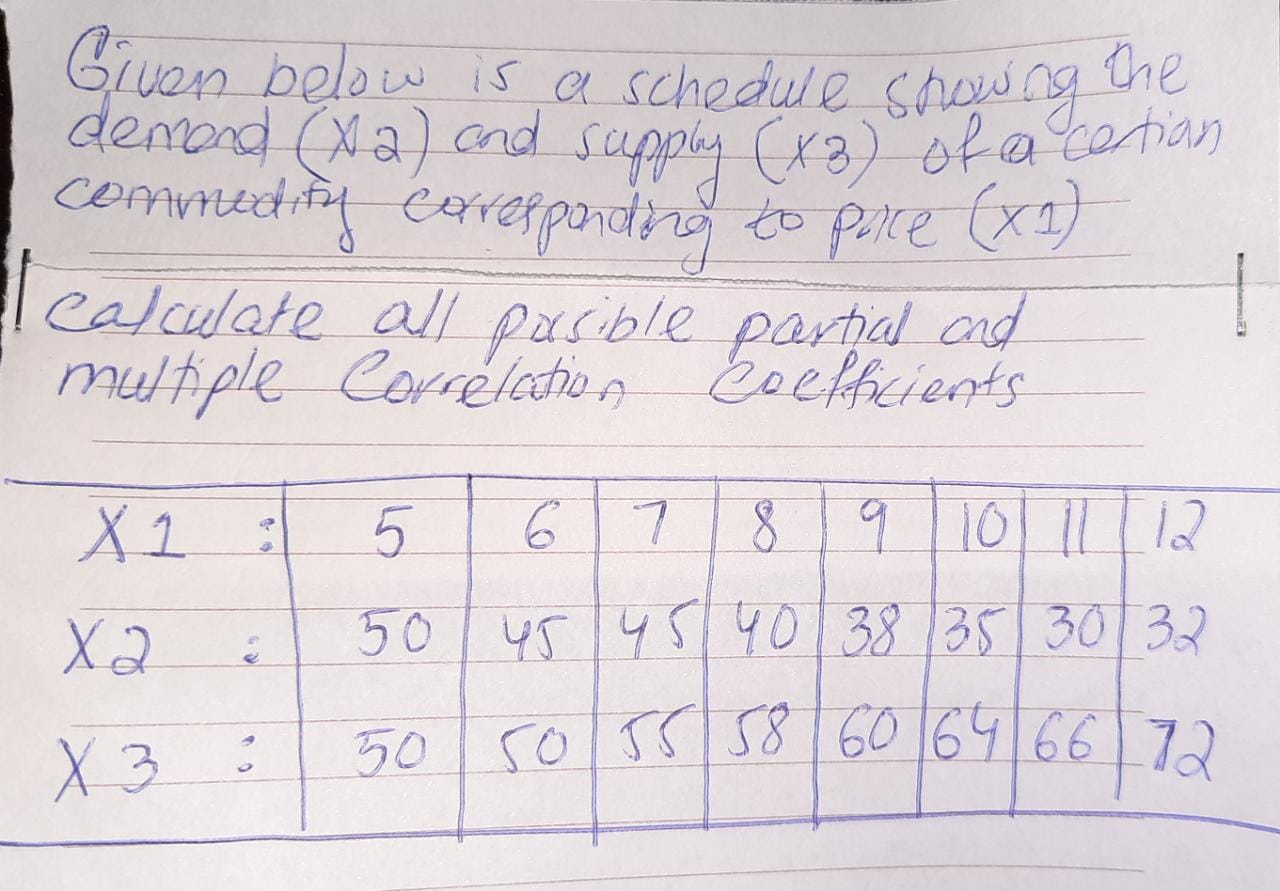 Given below is a schedule showing the
demand (X2) and supply (X3) of a certian
commodity corresponding to price (X1)
Calculate all possible partial and
multiple Correlation Coefficients
X1 : 5 6 7 8 9 10 11 12
X2 : 50 45 45 40 38 35 30 32
X3 : 50 50 55 58 60 64 66 72